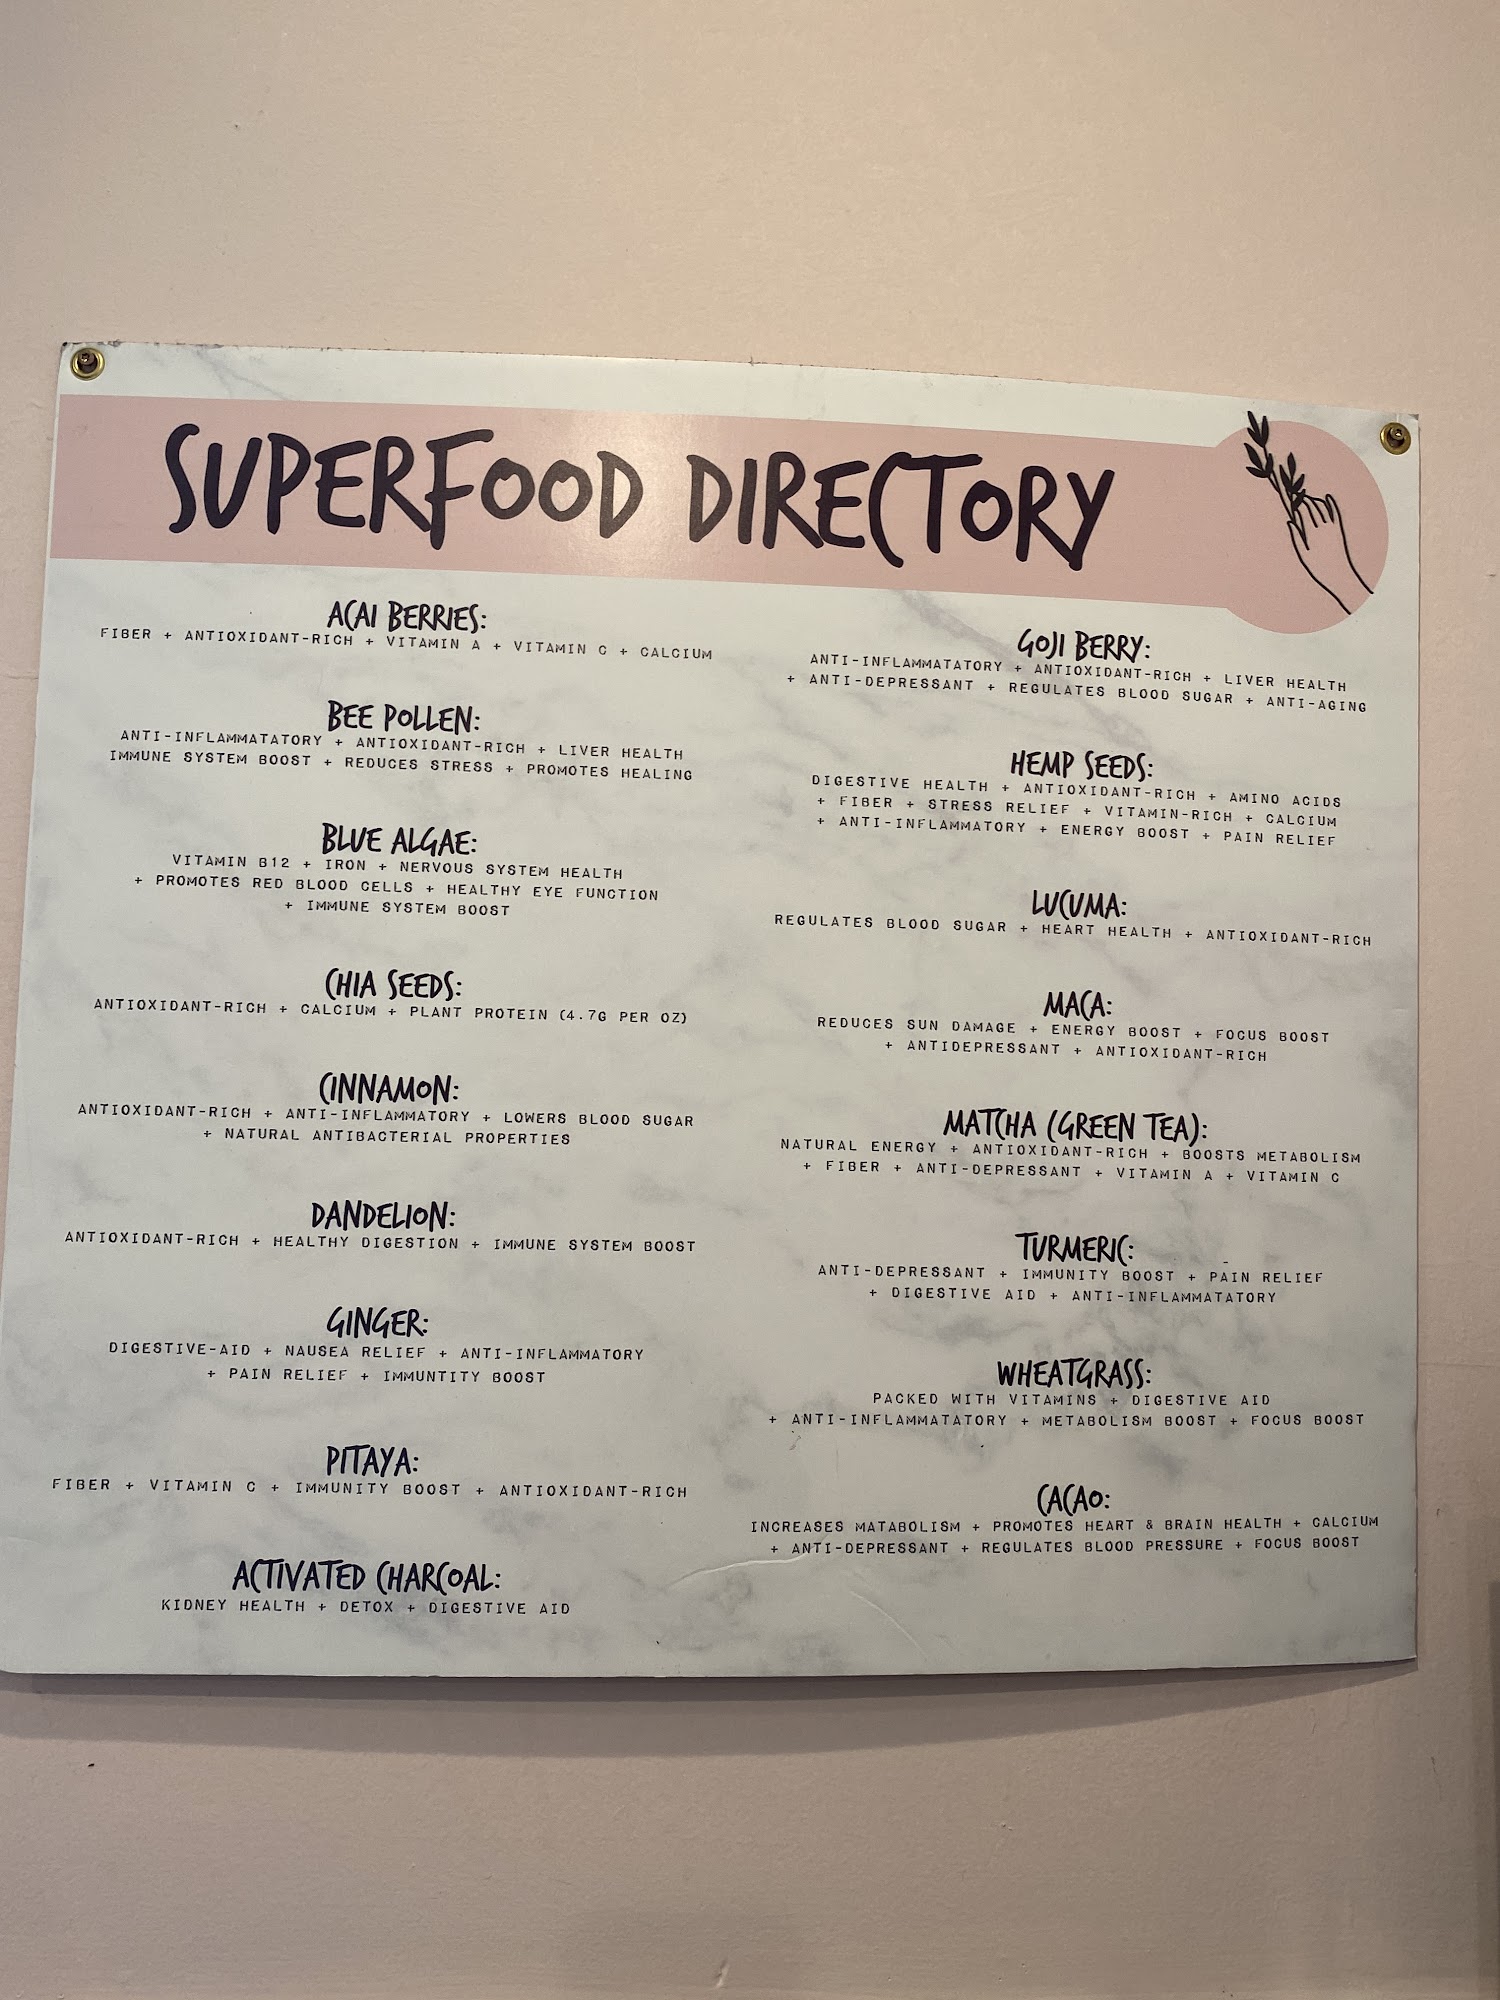 SUPERFOOD DIRECTORY
ACAI BERRIES:
FIBER + ANTIOXIDANT-RICH + VITAMIN A + VITAMIN C + CALCIUM
BEE POLLEN:
ANTI-INFLAMMATATORY + ANTIOXIDANT-RICH + LIVER HEALTH
IMMUNE SYSTEM BOOST + REDUCES STRESS + PROMOTES HEALING
BLUE ALGAE:
VITAMIN B12 + IRON + NERVOUS SYSTEM HEALTH
+ PROMOTES RED BLOOD CELLS + HEALTHY EYE FUNCTION
+ IMMUNE SYSTEM BOOST
CHIA SEEDS:
ANTIOXIDANT-RICH + CALCIUM + PLANT PROTEIN (4.7G PER OZ)
CINNAMON:
ANTIOXIDANT-RICH + ANTI-INFLAMMATORY + LOWERS BLOOD SUGAR
+ NATURAL ANTIBACTERIAL PROPERTIES
DANDELION:
ANTIOXIDANT-RICH + HEALTHY DIGESTION + IMMUNE SYSTEM BOOST
GINGER:
DIGESTIVE-AID + NAUSEA RELIEF + ANTI-INFLAMMATORY
+ PAIN RELIEF + IMMUNTITY BOOST
PITAYA:
FIBER + VITAMIN C + IMMUNITY BOOST + ANTIOXIDANT-RICH
ACTIVATED CHARCOAL:
KIDNEY HEALTH + DETOX + DIGESTIVE AID
GOJI BERRY:
ANTI-INFLAMMATATORY + ANTIOXIDANT-RICH + LIVER HEALTH
+ ANTI-DEPRESSANT + REGULATES BLOOD SUGAR + ANTI-AGING
HEMP SEEDS:
DIGESTIVE HEALTH + ANTIOXIDANT-RICH + AMINO ACIDS
+ FIBER + STRESS RELIEF + VITAMIN-RICH + CALCIUM
+ ANTI-INFLAMMATORY + ENERGY BOOST + PAIN RELIEF
LUCUMA:
REGULATES BLOOD SUGAR + HEART HEALTH + ANTIOXIDANT-RICH
MACA:
REDUCES SUN DAMAGE + ENERGY BOOST + FOCUS BOOST
+ ANTIDEPRESSANT + ANTIOXIDANT-RICH
MATCHA (GREEN TEA):
NATURAL ENERGY + ANTIOXIDANT-RICH + BOOSTS METABOLISM
+ FIBER + ANTI-DEPRESSANT + VITAMIN A + VITAMIN C
TURMERIC:
ANTI-DEPRESSANT + IMMUNITY BOOST + PAIN RELIEF
+ DIGESTIVE AID + ANTI-INFLAMMATATORY
WHEATGRASS:
PACKED WITH VITAMINS + DIGESTIVE AID
+ ANTI-INFLAMMATATORY + METABOLISM BOOST + FOCUS BOOST
CACAO:
INCREASES MATABOLISM + PROMOTES HEART & BRAIN HEALTH + CALCIUM
+ ANTI-DEPRESSANT + REGULATES BLOOD PRESSURE + FOCUS BOOST